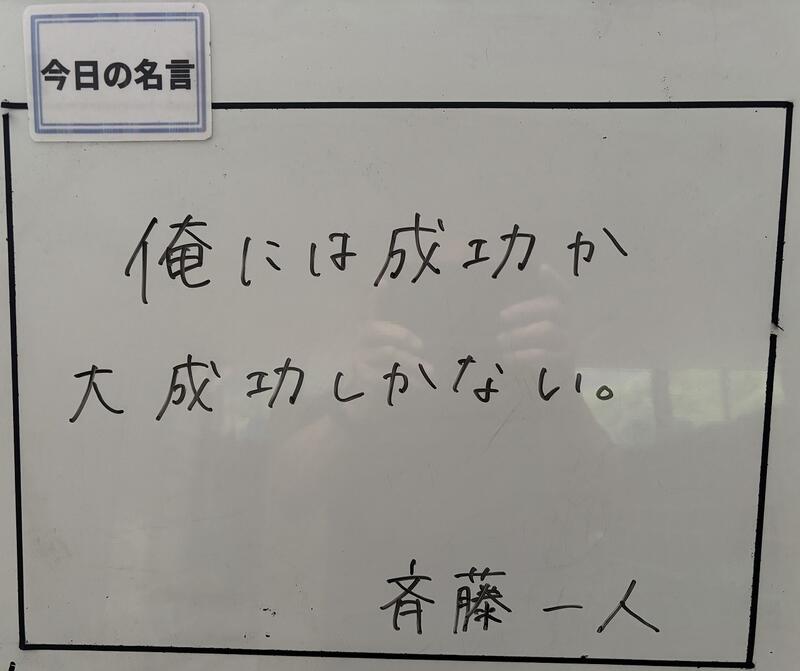 今日の名言
俺には成功か
大成功しかない。
斉藤一人